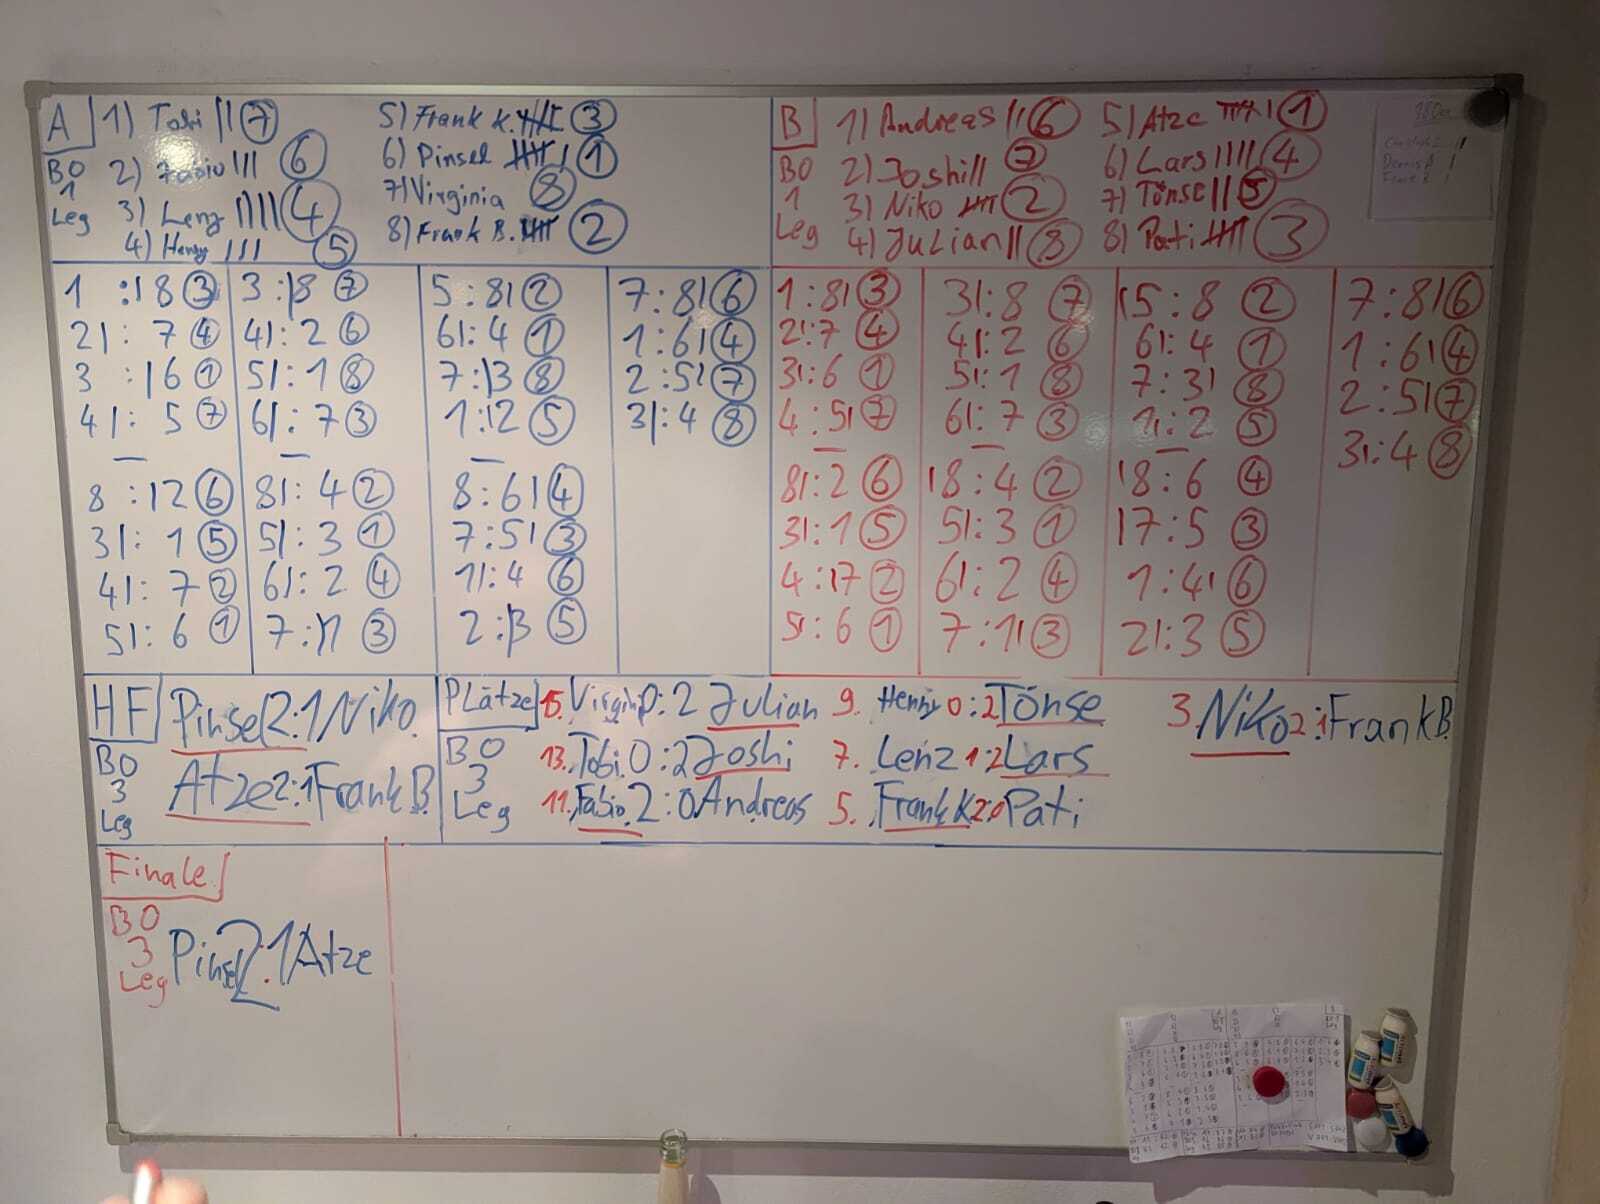 A 1) Tobi || 7
2) Fabio ||| 6
3) Lenz |||| 4
4) Henry ||| 5
5) Frank K. |||| 3
6) Pinsel |||| | 1
7) Virginia 8
8) Frank B. |||| 2
BO
1
Leg
B 1) Andreas || 6
2) Joshi || 7
3) Niko |||| 2
4) Julian || 8
5) Atze |||| | 1
6) Lars |||| 4
7) Tönse || 5
8) Pati |||| 3
BO
1
Leg
1 :| 8 3
2| : 7 4
3 :| 6 1
4| : 5 7
8 :| 2 6
3| : 1 5
4| : 7 2
5| : 6 1
3 :| 8 7
4| : 2 6
5| : 1 8
6| : 7 3
8| : 4 2
5| : 3 1
6| : 2 4
7 :| 1 3
5 : 8| 2
6| : 4 1
7 :| 3 8
1 :| 2 5
8 : 6| 4
7 : 5| 3
1| : 4 6
2 :| 3 5
7 : 8| 6
1 : 6| 4
2 : 5| 7
3| : 4 8
1 : 8| 3
2| : 7 4
3| : 6 1
4 : 5| 7
8| : 2 6
3| : 1 5
4 : |7 2
5| : 6 1
3| : 8 7
4| : 2 6
5| : 1 8
6| : 7 3
|8 : 4 2
5| : 3 1
6| : 2 4
7 : 1| 3
|5 : 8 2
6| : 4 1
7 : 3| 8
1| : 2 5
|8 : 6 4
|7 : 5 3
1 : 4| 6
2| : 3 5
7 : 8| 6
1 : 6| 4
2 : 5| 7
3| : 4 8
HF
BO
3
Leg
Pinsel 2:1 Niko
Atze 2:1 Frank B.
Plätze
BO
3
Leg
15. Virgin 0:2 Julian
13. Tobi 0:2 Joshi
11. Fabio 2:0 Andreas
9. Henry 0:2 Tönse
7. Lenz 1:2 Lars
5. Frank K 2:0 Pati
3 Niko 2:1 Frank B.
Finale
BO
3
Leg
Pinsel 2:1 Atze